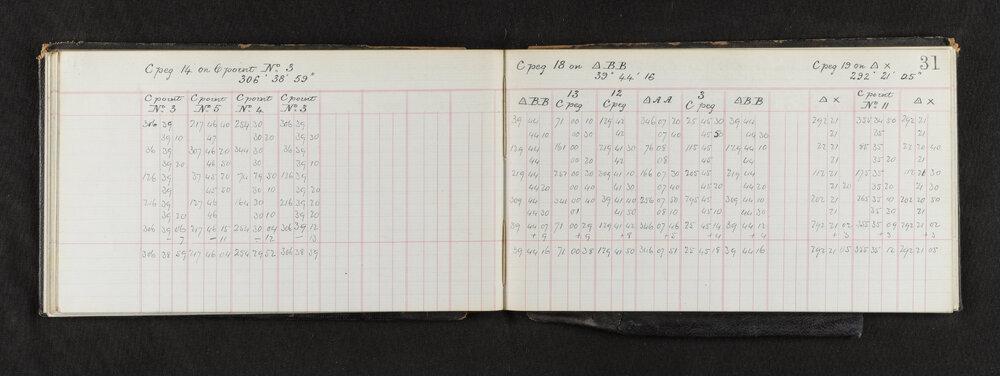 C peg 14 on C point No. 3
306° 38' 59"
C point No 3 C point No 5 C point No 4 C point No 3
306 39 217 46 40 254 30 306 39
39 10 47 30 20 39 30
36 39 307 46 20 344 30 36 39
39 20 46 50 30 39 10
126 39 37 45 20 74 29 50 126 39
39 45 50 30 10 39 20
216 39 127 46 164 30 216 39
39 20 46 30 10 39 20
306 39 06 217 46 15 254 30 04 306 39 12
- 7 - 11 - 12 - 13
306 38 59 217 46 04 254 29 52 306 38 59
31
C peg 18 on Δ BB
39° 44' 16
C peg 19 on Δ x
292° 21' 05"
Δ BB 13 C peg 12 C peg Δ AA 3 C peg Δ BB Δ x C point No 11 Δ x
39 44 71 00 10 129 42 346 07 20 25 45 30 39 44 292 21 355 34 50 292 21
44 10 00 30 42 07 40 45 44 30 21 35 21
129 44 161 00 219 41 30 76 08 115 45 129 44 10 22 21 85 35 22 20 40
44 00 20 42 08 45 44 21 35 20 21
219 44 251 00 30 309 41 10 166 07 30 205 45 219 44 112 21 175 35 112 21 30
44 20 00 40 41 30 07 40 45 20 44 20 21 20 35 20 21 30
309 44 341 00 40 39 41 40 256 07 50 295 45 309 44 10 202 21 265 35 10 202 20 50
44 30 01 41 50 08 10 45 10 44 30 21 35 20 21
39 44 07 71 00 29 129 41 42 346 07 46 25 45 14 39 44 12 292 21 02 355 35 09 292 21 02
+ 9 + 9 + 8 + 5 + 4 + 4 + 3 + 3 + 3
39 44 16 71 00 38 129 41 50 346 07 51 25 45 18 39 44 16 292 21 05 355 35 12 292 21 05